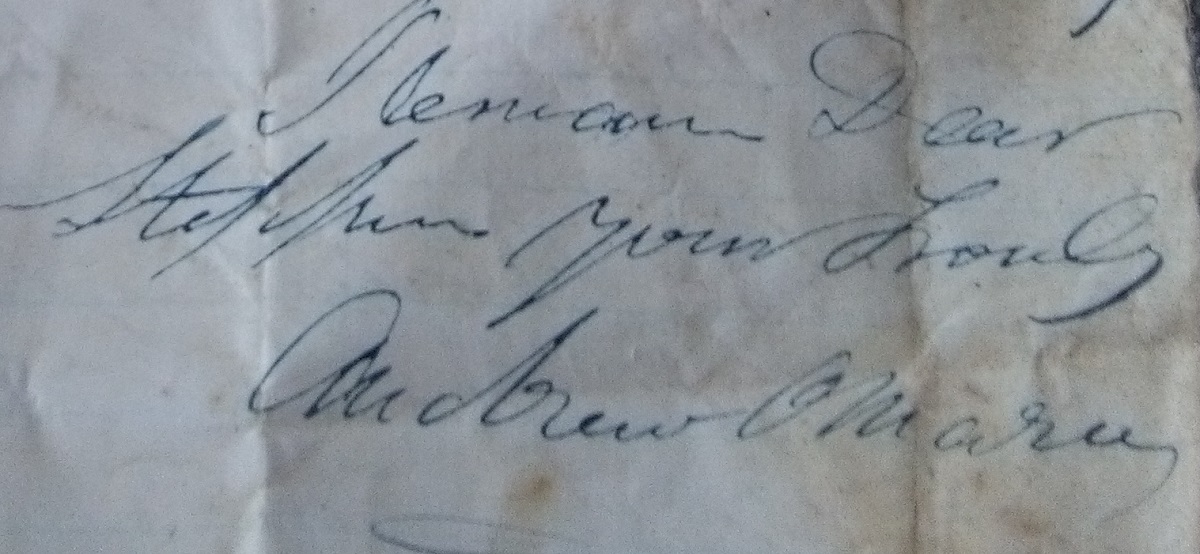 Remain Dear
Stephen your Truly
Andrew OMara